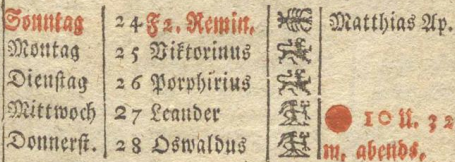 Sonntag 24 F2. Remin. Matthias Ap.
Montag 25 Viktorinus
Dienstag 26 Porphirius
Mittwoch 27 Leander 10 U. 32
Donnerst. 28 Oswaldus m. abends,